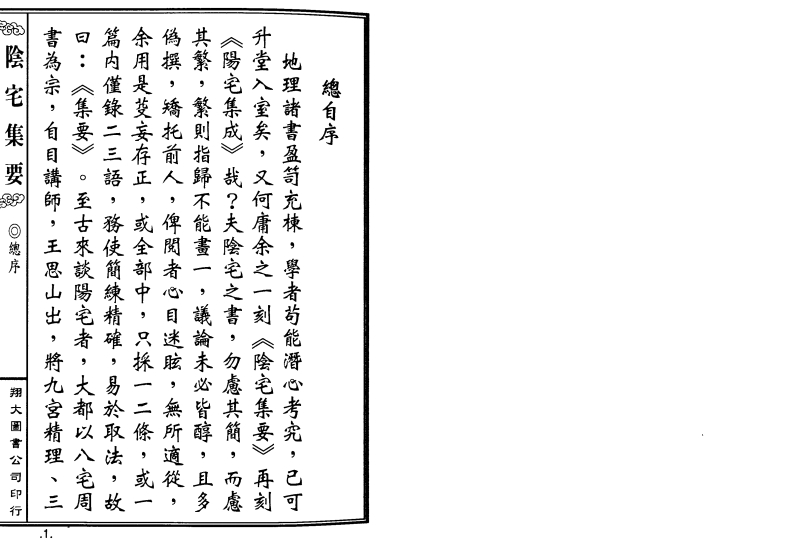 總自序
地理諸書盈笥充棟，學者苟能潛心考究，已可
升堂入室矣，又何庸余之一刻《陰宅集要》再刻
《陽宅集成》哉？夫陰宅之書，勿慮其簡，而慮
其繁，繁則指歸不能畫一，議論未必皆醇，且多
偽撰，矯托前人，俾閱者心目迷眩，無所適從，
余用是芟妄存正，或全部中，只採一二條，或一
篇內僅錄二三語，務使簡練精確，易於取法，故
曰：《集要》。至古來談陽宅者，大都以八宅周
書為宗，自目講師，王思山出，將九宮精理、三
陰宅集要
◎總序
翔大圖書公司印行
.1.